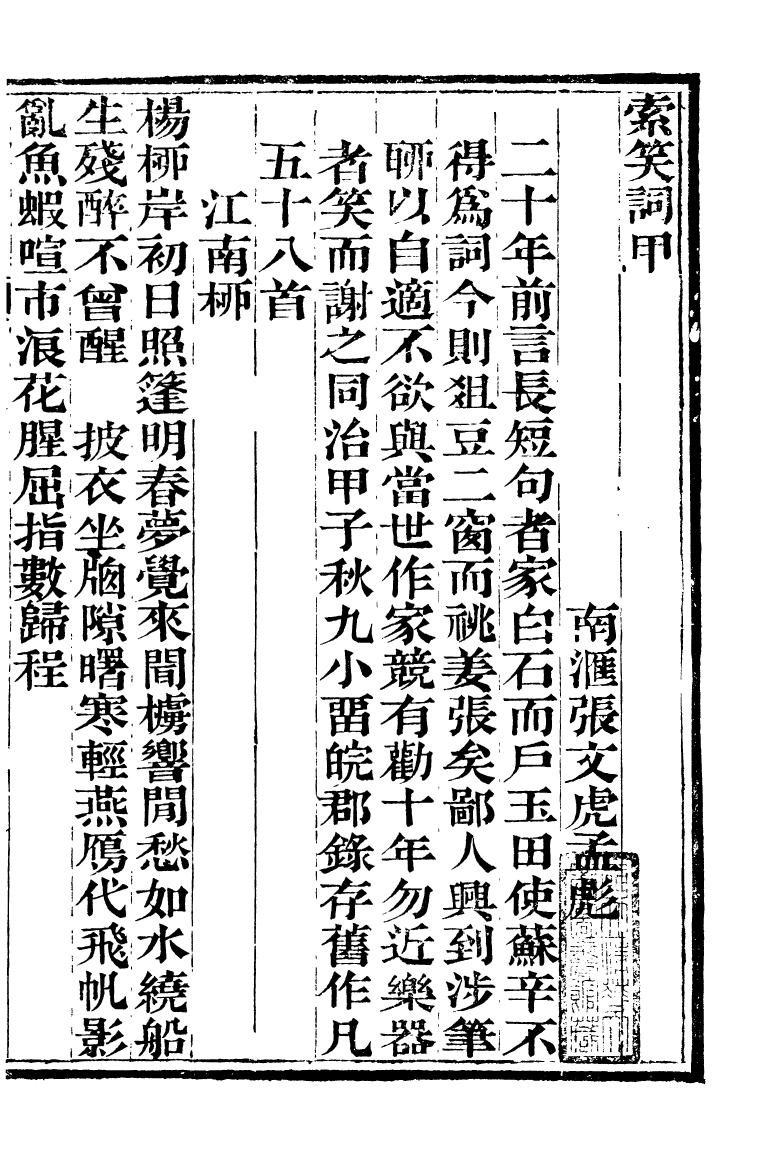 索笑詞甲
南滙張文虎孟彪
二十年前言長短句者家白石而戶玉田使蘇辛不
得爲詞今則俎豆二窗而祧姜張矣鄙人興到涉筆
聊以自適不欲與當世作家競有勸十年勿近樂器
者笑而謝之同治甲子秋九小畱皖郡錄存舊作凡
五十八首
江南桺
楊桺岸初日照篷明春夢覺來閒櫓響閒愁如水繞船
生殘醉不曾醒　披衣坐牕隙曙寒輕燕鴈代飛帆影
亂魚蝦喧市浪花腥屈指數歸程